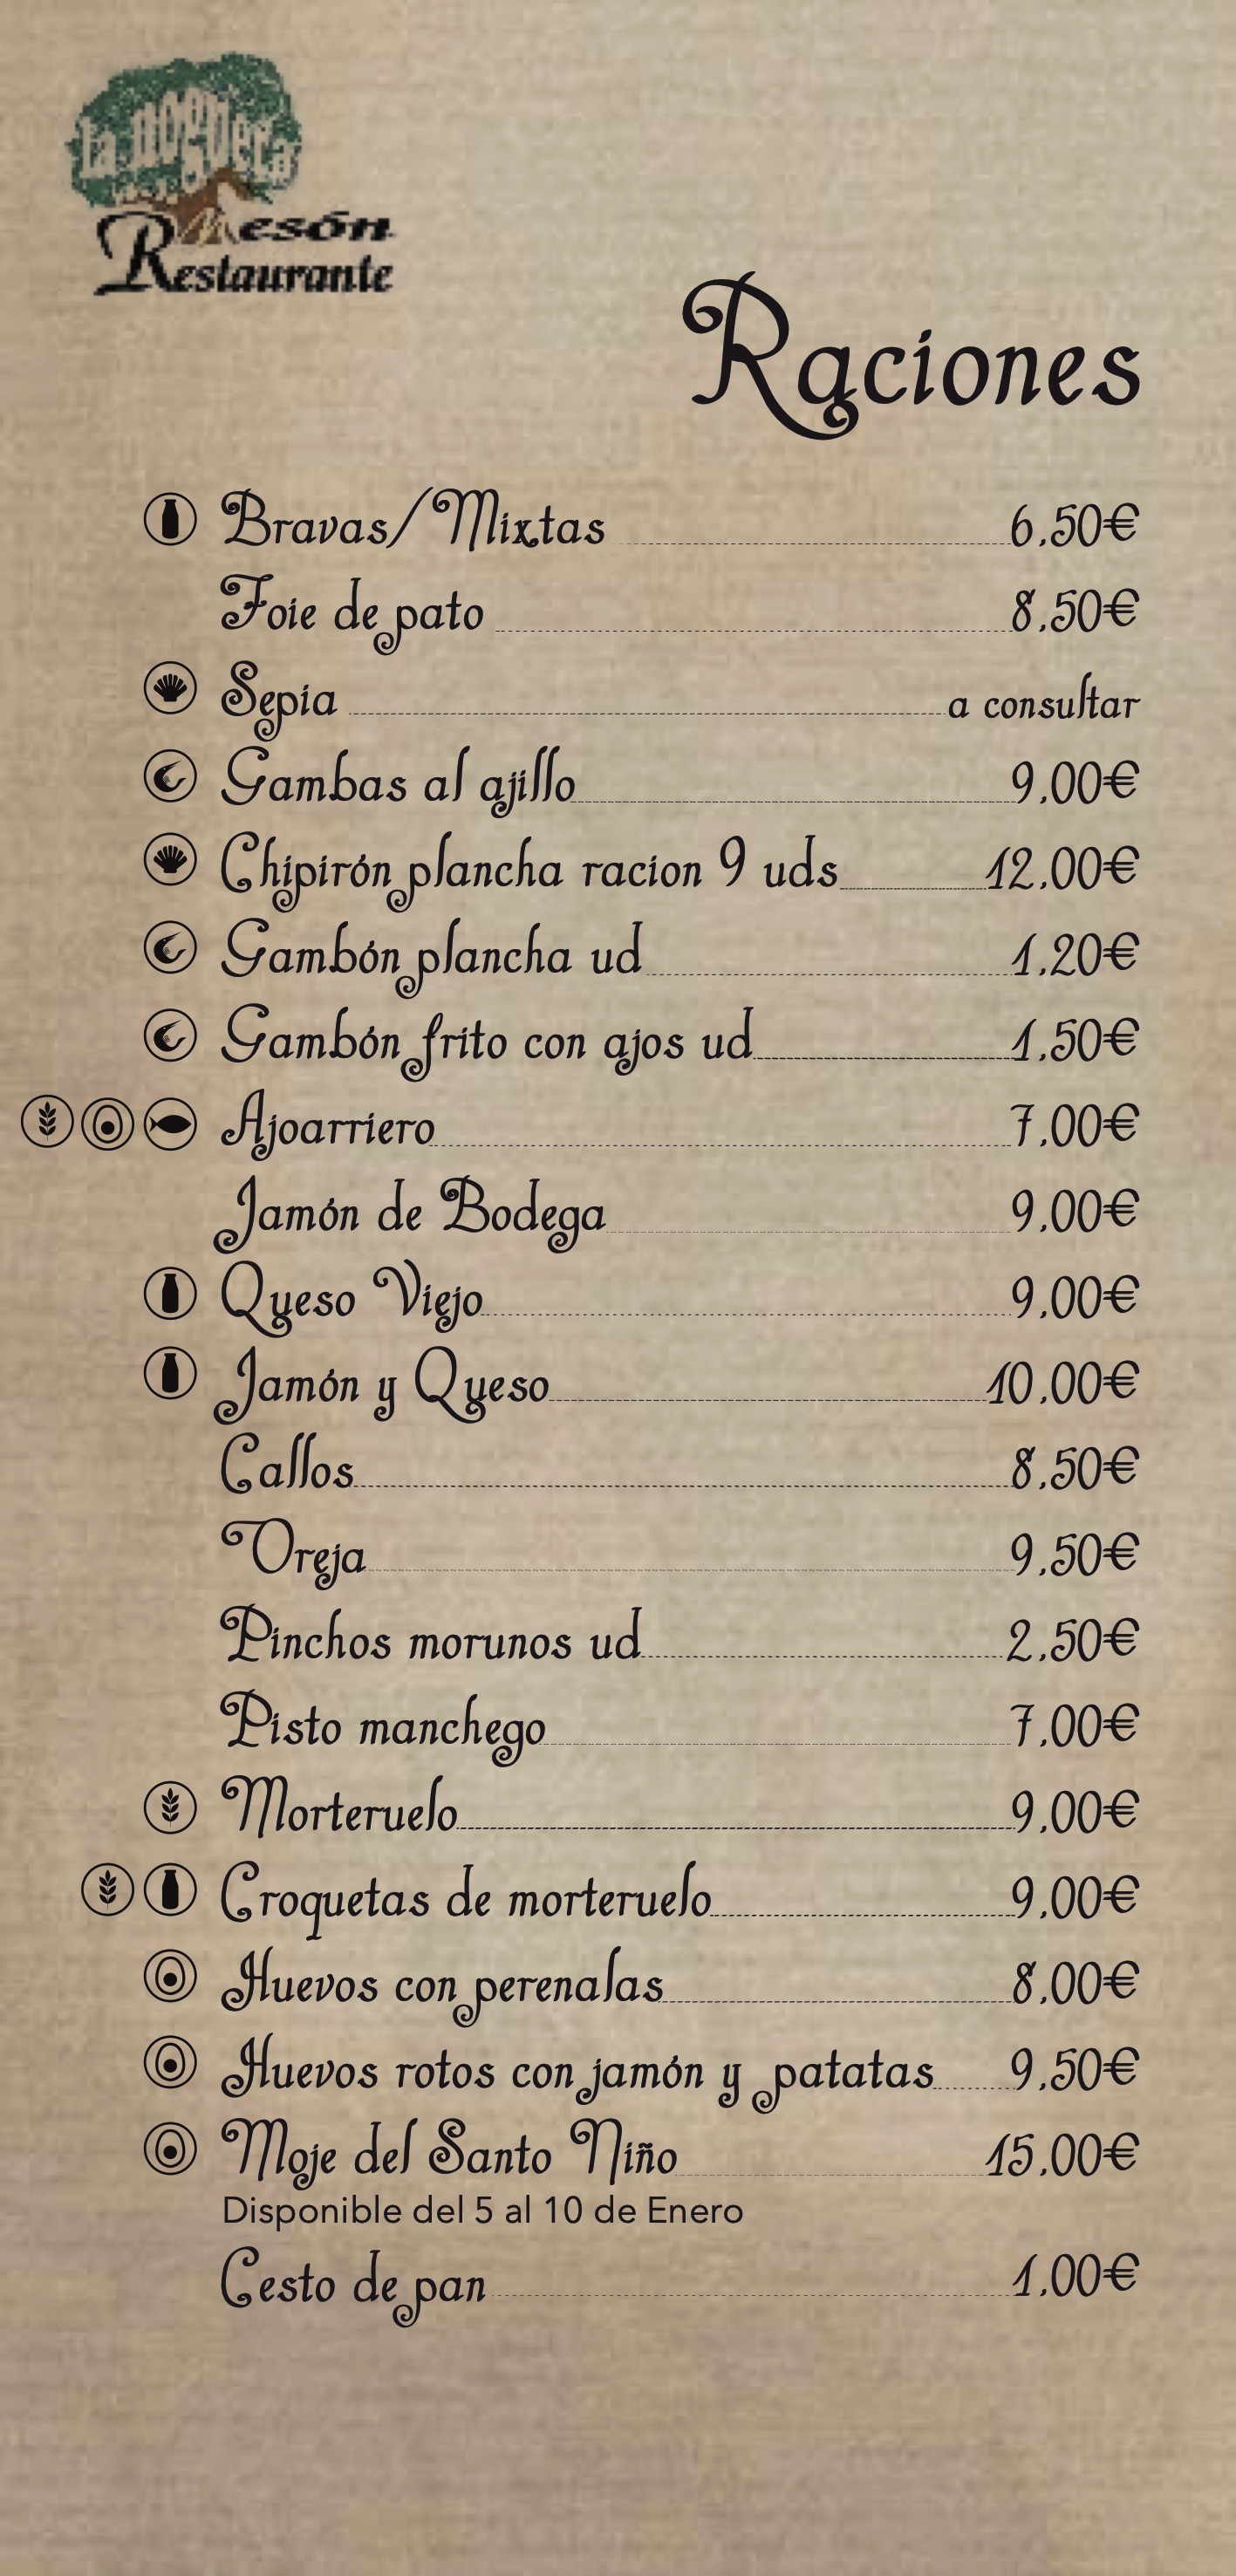 la noguera
Mesón
Restaurante
Raciones
Bravas/Mixtas 6.50€
Foie de pato 8.50€
Sepia a consultar
Gambas al ajillo 9.00€
Chipirón plancha racion 9 uds 12.00€
Gambón plancha ud 1.20€
Gambón frito con ajos ud 1.50€
Ajoarriero 7.00€
Jamón de Bodega 9.00€
Queso Viejo 9.00€
Jamón y Queso 10.00€
Callos 8.50€
Oreja 9.50€
Pinchos morunos ud 2.50€
Pisto manchego 7.00€
Morteruelo 9.00€
Croquetas de morteruelo 9.00€
Huevos con perenalas 8.00€
Huevos rotos con jamón y patatas 9.50€
Moje del Santo Niño 15.00€
Disponible del 5 al 10 de Enero
Cesto de pan 1.00€